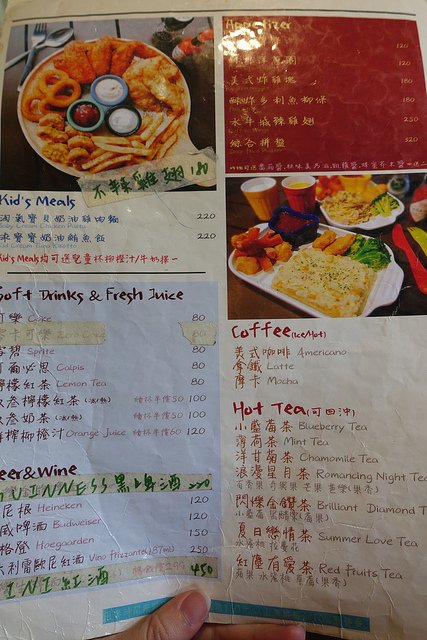 Appetizer
120
120
美式炸雞塊 180
酥炸多利魚柳條 180
水牛城辣雞翅 250
綜合拼盤 320
不辣雞翅 180
Kid's Meals
淘氣寶貝奶油雞肉麵 220
Baby Cream Chicken Pasta
220
Kid's Meals均可送兒童杯柳橙汁/牛奶擇一
Soft Drinks & Fresh Juice
可樂 Coke 80
雪碧 Sprite 80
可爾必思 Calpis 80
檸檬紅茶 Lemon Tea 80
檸檬紅茶(冰/熱) 續杯半價50 100
奶茶(冰/熱) 續杯半價50 100
鮮榨柳橙汁 Orange Juice 續杯半價60 120
Beer&Wine
GUINNESS黑啤酒 220
海尼根 Heineken 120
百威啤酒 Budweiser 120
豪格登 Hoegaarden 150
Vino Frizzante(187ml) 250
紅酒 450
Coffee(Ice/Hot)
美式咖啡 Americano
拿鐵 Latte
摩卡 Mocha
Hot Tea(可回沖)
小藍莓茶 Blueberry Tea
薄荷茶 Mint Tea
洋甘菊茶 Chamomile Tea
浪漫星月茶 Romancing Night Tea
閃爍金鑽茶 Brilliant Diamond T
夏日戀情茶 Summer Love Tea
紅塵有愛茶 Red Fruits Tea